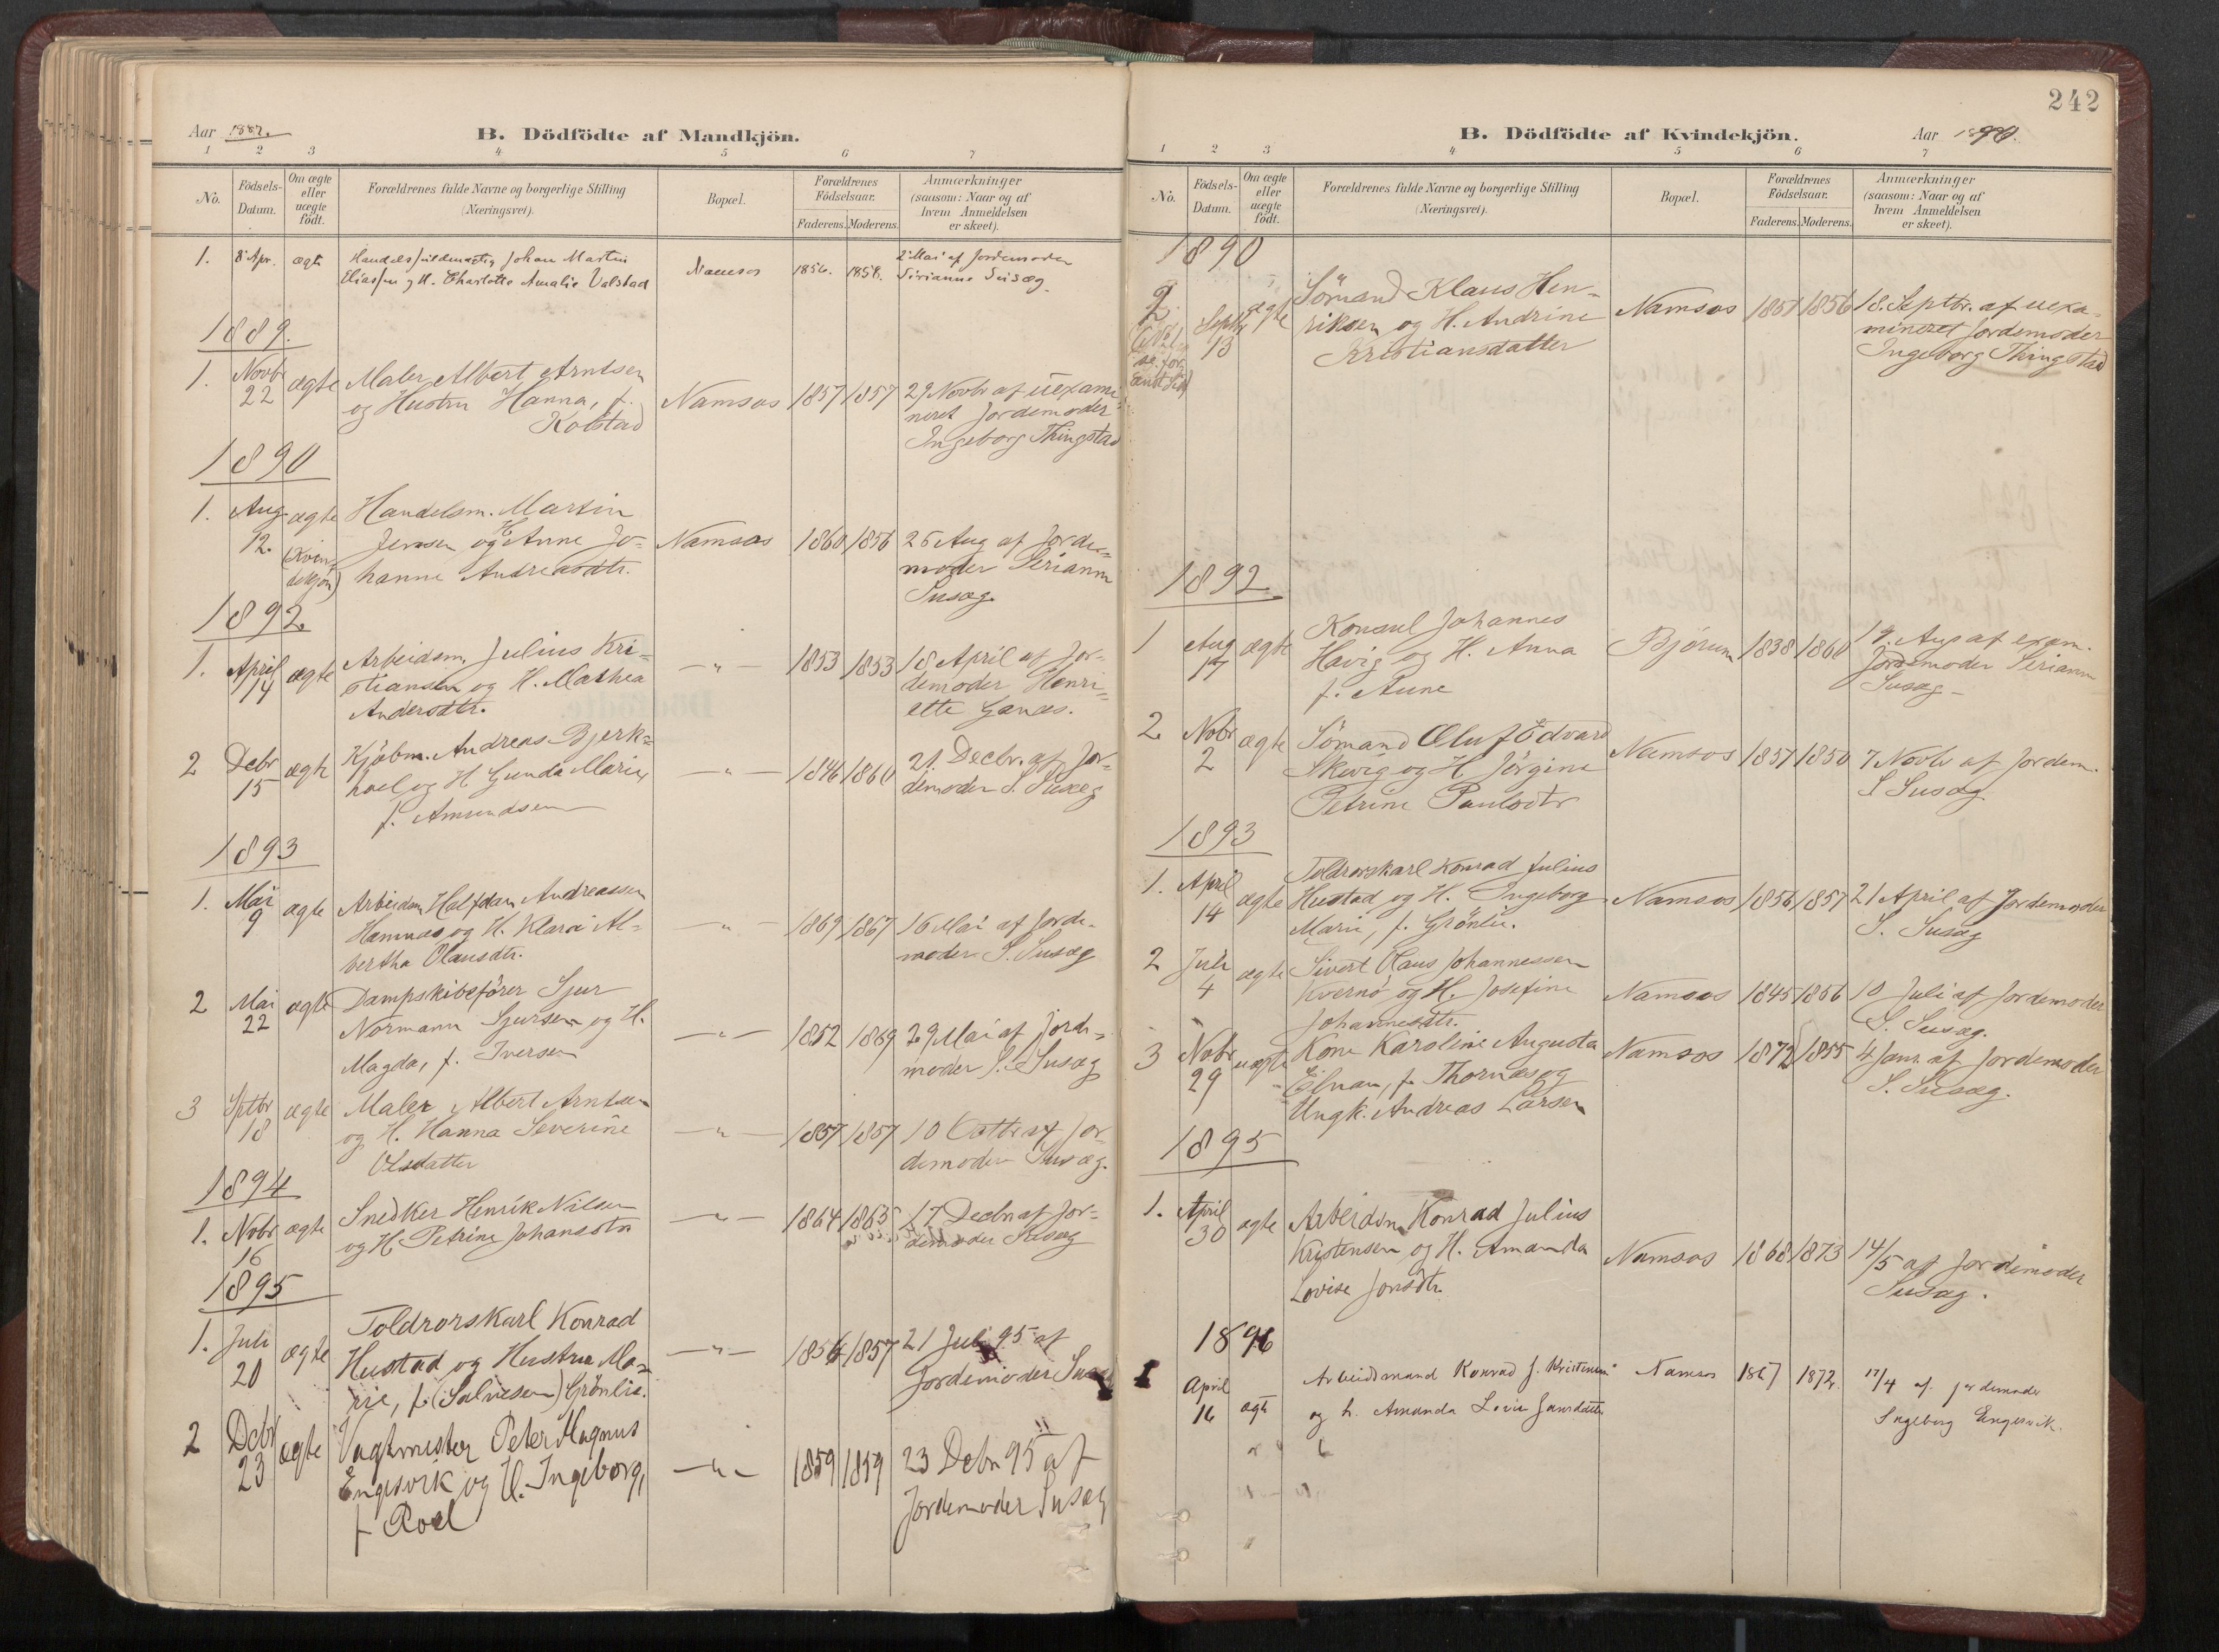 Aar 1887.
B. Dödfödte af Mandkjön.
1 2 3 4 5 6 7
No. Födsels-Datum. Om ægte eller uægte födt. Forældrenes fulde Navne og borgerlige Stilling (Næringsvei). Bopæl. Forældrenes Födselsaar. Faderens. Moderens. Anmærkninger (saasom: Naar og af hvem Anmeldelsen er skeet).
1. 8 Apr. ægte Handelsfuldmægtig Johan Martin Namsos 1856. 1858. 2 Mai af Jordemoder
Eliassen og H. Charlotte Amalie Valstad Sirianne Susæg.
1889.
1. Novbr ægte Maler Albert Arntsen Namsos 1857 1857 29 Novbr af uexami-
22 og Hustru Hanna, f. neret Jordemoder
Kolstad Ingeborg Thingstad
1890
1. Aug. ægte Handelsm. Martin
12. (Kvin- Jensen og H. Anne Jo- Namsos 1860 1856 25 Aug af Jorde-
dekjön) hanne Andreasdtr. moder Serianna
Susæg
1892.
1. April ægte Arbeidsm. Julius Kri- -"- 1853 1853 18 April af Jor-
14 stiansen og H. Mathea demoder Henri-
Andersdtr. ette Ganæs.
2 Debr ægte Kjöbm. Andreas Bjerk- -"- 1846 1860 21. Decbr. af Jor-
15 hoel og H Gunda Marie, demoder S. Susæg
f. Amundsen
1893
1. Mai ægte Arbeidsm Halfdan Andreassen
9 Hamnæs og H. Klara Al- -"- 1869 1867 16 Mai af Jorde-
bertha Olausdtr. moder S. Susæg
2 Mai ægte Dampskibsförer Sjur
22 Normann Sjursen og H. -"- 1852 1869 29 Mai af Jorde-
Magda, f. Iversen moder S. Susæg
3 Sptbr ægte Maler Albert Arntsen
18 og H. Hanna Severine -"- 1857 1857 10 Octbr af Jor-
Olsdatter demoder Susæg.
1894
1. Nobr ægte Snedker Henrik Nilsen -"- 1864 1863 17 Decbr af Jor-
16 og H. Petrine Johansdtr demoder Susæg
1895
1. Juli ægte Toldrorskarl Konrad
20 Hustad og Hustru Ma- -"- 1856 1857 21 Juli 95 af
rie, f. (Salvesen) Grönlie. Jordemoder Susæg
2 Debr ægte Vagtmester Peter Magnus
23 Engesvik og H. Ingeborg, -"- 1859 1859 23 Debr 95 af
f. Roel Jordemoder Susæg
242
B. Dödfödte af Kvindekjön. Aar 1890.
1 2 3 4 5 6 7
No. Födsels-Datum. Om ægte eller uægte födt. Forældrenes fulde Navne og borgerlige Stilling (Næringsvei). Bopæl. Forældrenes Födselsaar. Faderens. Moderens. Anmærkninger (saasom: Naar og af hvem Anmeldelsen er skeet).
1890
2 Septbr ægte Sömand Klaus Hen- Namsos 1851 1856 18. Septbr. af uexa-
(No 1 13 riksen og H. Andrine mineret Jordemoder
se for- Kristiansdatter Ingeborg Thingstad
1892.
1 Aug ægte Konsul Johannes
17 Havig og H. Anna Bjørum 1838 1860 19. Aug af exam.
f. Aune Jordemoder Serianna
Susæg
2. Nobr ægte Sömand Oluf Edvard
2 Skevig og H. Jörgine Namsos 1857 1850 7 Novbr af Jordem.
Petrine Paulsdtr S Susæg
1893
1. April ægte Toldrorskarl Konrad Julius
14 Hustad og H. Ingeborg Namsos 1856 1857 21 April af Jordemoder
Marie, f. Grönlie. S. Susæg
2 Juli ægte Sivert Olaus Johannessen
4 Kvernö og H. Josefine Namsos 1845 1856 10 Juli af Jordemoder
Johannesdtr. S. Susæg.
3 Nobr uægte Kone Karoline Augusta Namsos 1872 1855 4 Janr. af Jordemoder
29 f. Thornæs og S. Susæg.
Ungk. Andreas Larsen
1895
1. April ægte Arbeidsm Konrad Julius
30 Kristensen og H. Amanda Namsos 1868 1873 14/5 af Jordemoder
Lovise Jonsdtr. Susæg.
1896
1 April ægte Arbeidsmand Konrad J. Kristensen Namsos 1867 1872. 17/4 af jordemoder
16 og h. Amanda Lovise Jonsdatter Ingeborg Engesvik.